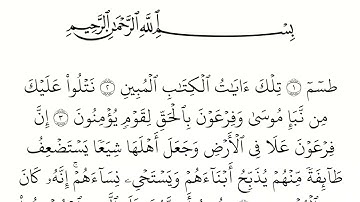 بِسْمِ ٱللَّهِ ٱلرَّحْمَٰنِ ٱلرَّحِيمِ
طسٓمٓ ۝١ تِلْكَ ءَايَٰتُ ٱلْكِتَٰبِ ٱلْمُبِينِ ۝٢ نَتْلُوا۟ عَلَيْكَ
مِن نَّبَإِ مُوسَىٰ وَفِرْعَوْنَ بِٱلْحَقِّ لِقَوْمٍ يُؤْمِنُونَ ۝٣ إِنَّ
فِرْعَوْنَ عَلَا فِى ٱلْأَرْضِ وَجَعَلَ أَهْلَهَا شِيَعًا يَسْتَضْعِفُ
طَآئِفَةً مِّنْهُمْ يُذَبِّحُ أَبْنَآءَهُمْ وَيَسْتَحْىِۦ نِسَآءَهُمْ ۚ إِنَّهُۥ كَانَ